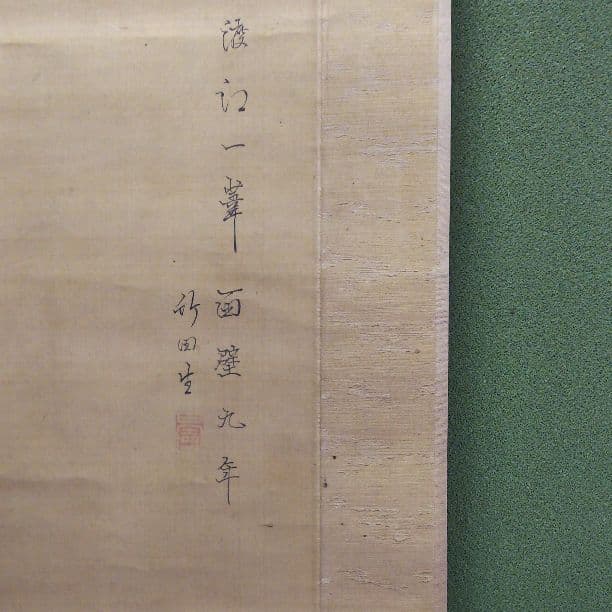 渡江一葦面壁九年
竹田生